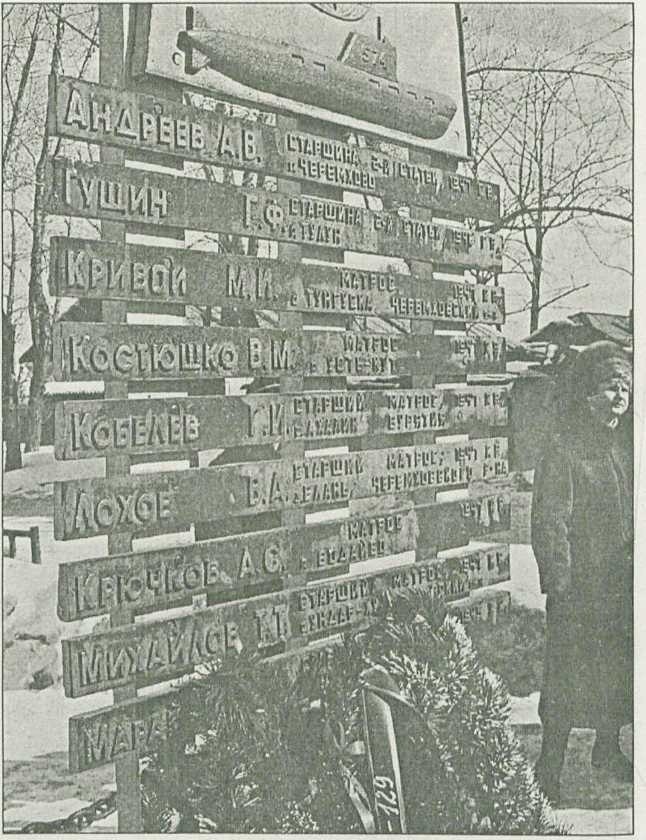 574
АНДРЕЕВ А.В. СТАРШИНА 2-Й СТАТЬИ, 1947 Г.Р.
Г. ЧЕРЕМХОВО
ГУЩИН Г.Ф. СТАРШИНА 2-Й СТАТЬИ, 1946 Г.Р.
Г. ТУЛУН
КРИВОЙ М.И. МАТРОС, 1947 Г.Р.
ТУНГУСКА ЧЕРЕМХОВСКИЙ
КОСТЮШКО В.М. МАТРОС 1947 Г.Р.
Г. УСТЬ-КУТ
КОБЕЛЕВ Г.И. СТАРШИЙ МАТРОС, 1947 Г.Р.
БУРЯТИЯ
ЛОХОВ В.А. СТАРШИЙ МАТРОС, 1947 Г.Р.
ЧЕРЕМХОВСКОГО Р-НА
КРЮЧКОВ А.С. МАТРОС 1947 Г.Р.
Г. БОДАЙБО
МИХАЙЛОВ Т.Т. СТАРШИЙ МАТРОС, 1947 Г.Р.
МАРА
129